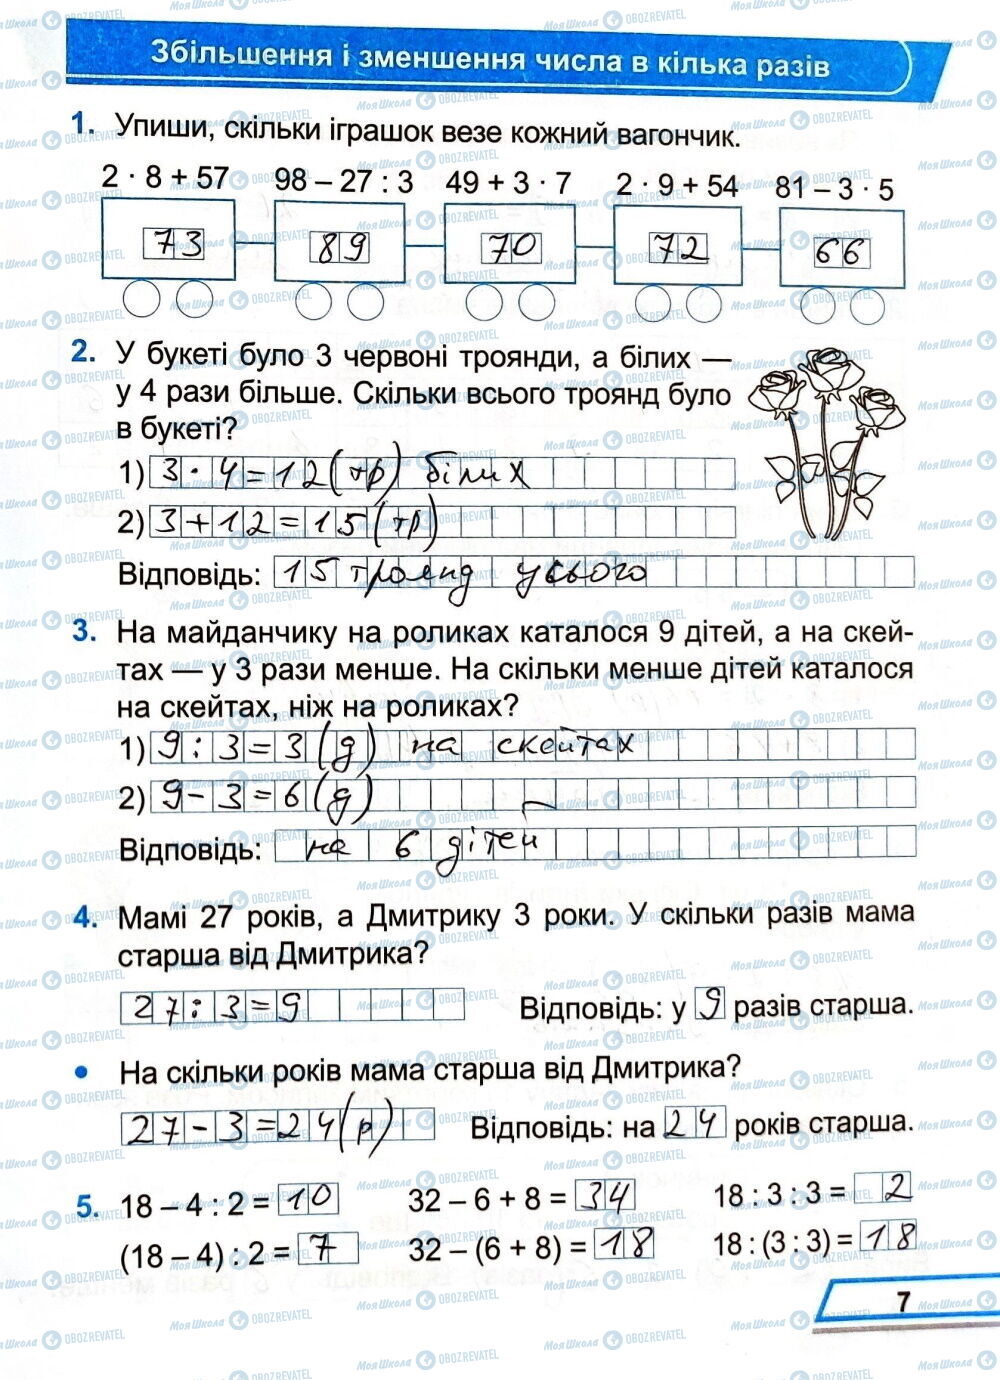 Збільшення і зменшення числа в кілька разів
1. Упиши, скільки іграшок везе кожний вагончик.
2 · 8 + 57 98 – 27 : 3 49 + 3 · 7 2 · 9 + 54 81 – 3 · 5
73 89 70 72 66
2. У букеті було 3 червоні троянди, а білих —
у 4 рази більше. Скільки всього троянд було
в букеті?
1) 3 · 4 = 12 (тр) білих
2) 3 + 12 = 15 (тр)
Відповідь: 15 троянд усього
3. На майданчику на роликах каталося 9 дітей, а на скей-
тах — у 3 рази менше. На скільки менше дітей каталося
на скейтах, ніж на роликах?
1) 9 : 3 = 3 (д) на скейтах
2) 9 – 3 = 6 (д)
Відповідь: на 6 дітей
4. Мамі 27 років, а Дмитрику 3 роки. У скільки разів мама
старша від Дмитрика?
27 : 3 = 9 Відповідь: у 9 разів старша.
• На скільки років мама старша від Дмитрика?
27 – 3 = 24 (р) Відповідь: на 24 років старша.
5. 18 – 4 : 2 = 10 32 – 6 + 8 = 34 18 : 3 : 3 = 2
(18 – 4) : 2 = 7 32 – (6 + 8) = 18 18 : (3 : 3) = 18
7
МояШкола OBOZREVATEL